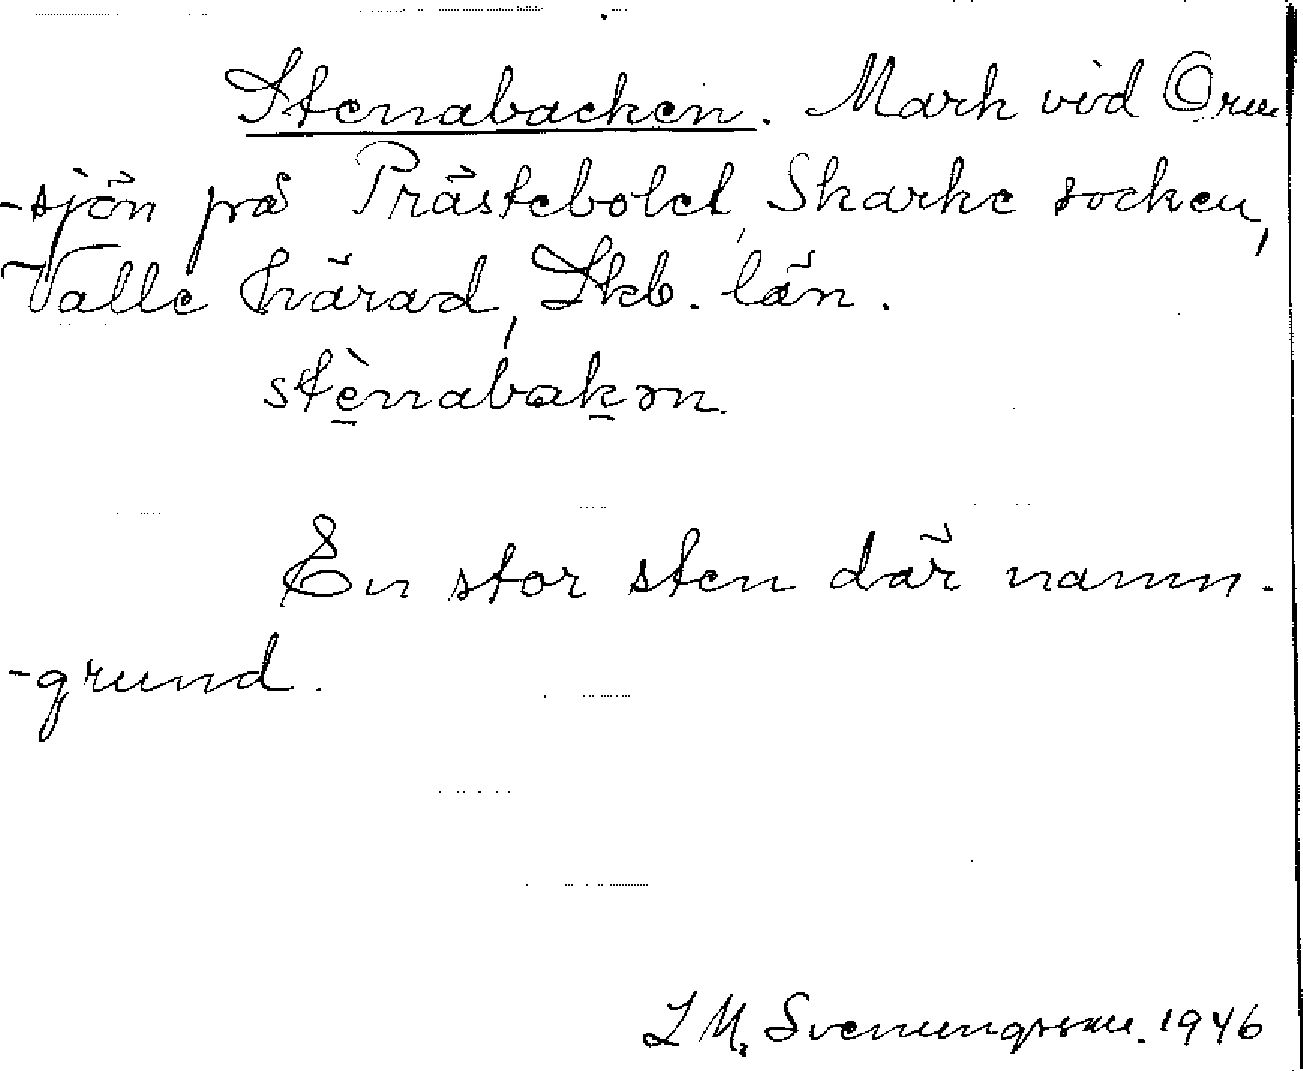 Stenabacken. Mark vid Orm
-sjön på Prästebolet, Skarke socken,
Valle härad, Skb. län.
stènabakən.
En stor sten där namn-
-grund.
L M. Svenungsson. 1946